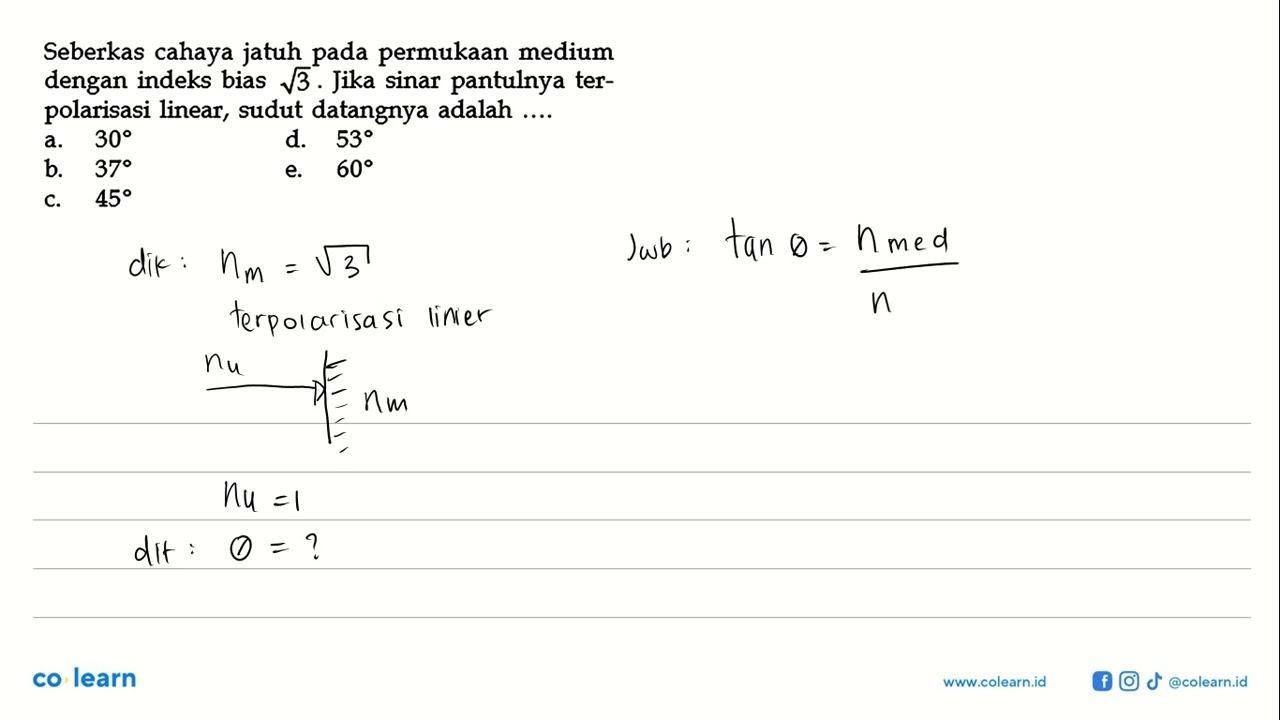 Seberkas cahaya jatuh pada permukaan medium
dengan indeks bias √3 . Jika sinar pantulnya ter-
polarisasi linear, sudut datangnya adalah ....
a. 30° d. 53°
b. 37° e. 60°
c. 45°
dik : nm = √3
terpolarisasi linier
nu
nm
nu = 1
dit : θ = ?
Jwb : tan θ = n med
n
co learn
www.colearn.id
@colearn.id